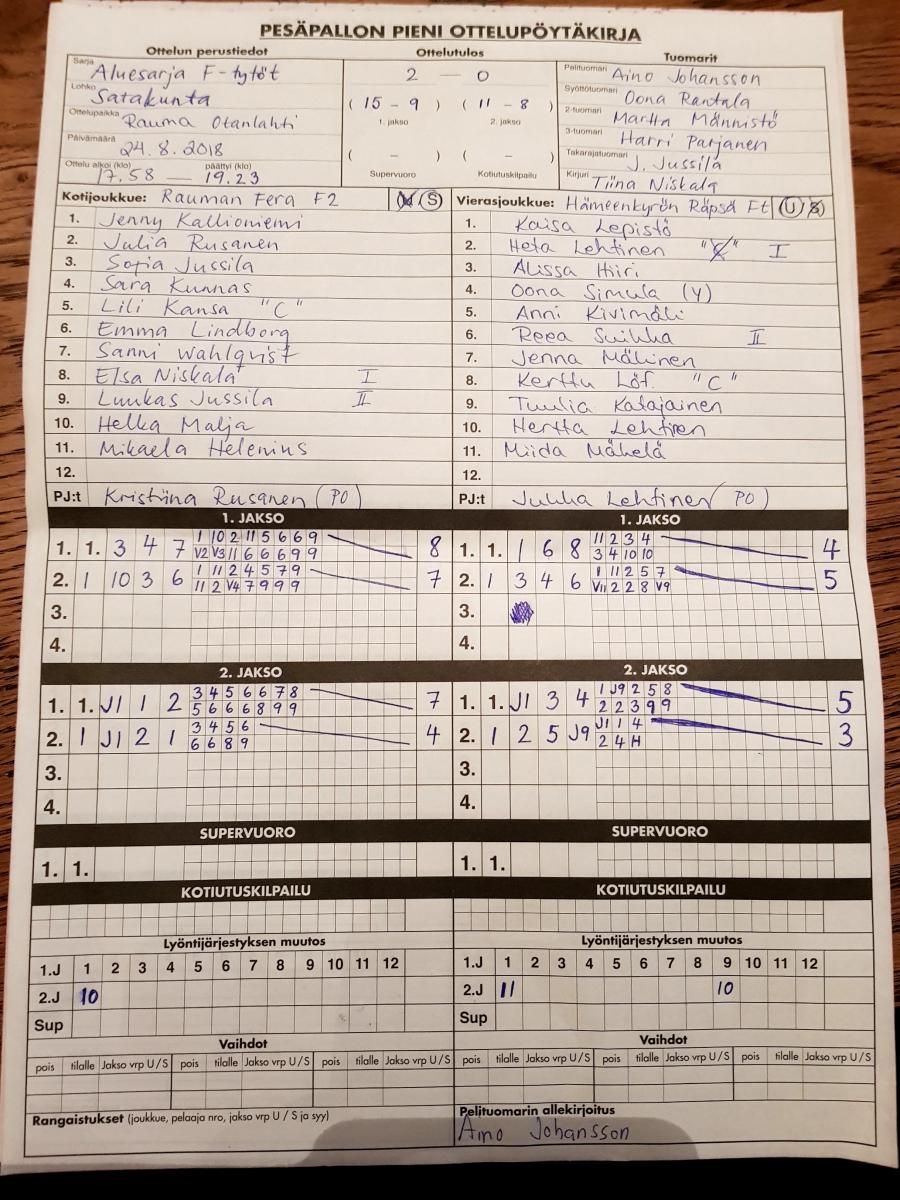 PESÄPALLON PIENI OTTELUPÖYTÄKIRJA
Ottelun perustiedot
Sarja Aluesarja F-tytöt
Lohko Satakunta
Ottelupaikka Rauma Otanlahti
Päivämäärä 24.8.2018
Ottelu alkoi (klo) päättyi (klo)
17.58 — 19.23
Ottelutulos
2 — 0
( 15 - 9 ) ( 11 - 8 )
1. jakso 2. jakso
( - ) ( - )
Supervuoro Kotiutuskilpailu
Tuomarit
Pelituomari Aino Johansson
Syöttötuomari Oona Rantala
2-tuomari Martta Männistö
3-tuomari Harri Parjanen
Takarajatuomari J. Jussila
Kirjuri Tiina Niskala
Kotijoukkue: Rauman Fera F2 U S
1. Jenny Kallioniemi
2. Julia Rusanen
3. Sofia Jussila
4. Sara Kunnas
5. Lili Kansa "C"
6. Emma Lindborg
7. Sanni Wahlqvist
8. Elsa Niskala I
9. Luukas Jussila II
10. Helka Malja
11. Mikaela Helenius
12.
PJ:t Kristiina Rusanen (PO)
Vierasjoukkue: Hämeenkyrön Räpsä Ft U S
1. Kaisa Lepistö
2. Heta Lehtinen "C" I
3. Alissa Hiiri
4. Oona Simula (Y)
5. Anni Kivimäki
6. Reea Suikka II
7. Jenna Mäkinen
8. Kerttu Löf. "C"
9. Tuulia Katajainen
10. Hertta Lehtinen
11. Miida Mäkelä
12.
PJ:t Jukka Lehtinen (PO)
1. JAKSO
1. 1. 3 4 7 1 10 2 11 5 6 6 9 8
V2 V3 11 6 6 6 9 9
2. 1 10 3 6 1 11 2 4 5 7 9 7
11 2 V4 7 9 9 9
3.
4.
1. JAKSO
1. 1. 1 6 8 11 2 3 4 4
3 4 10 10
2. 1 3 4 6 1 11 2 5 7 5
V11 2 2 8 V9
3.
4.
2. JAKSO
1. 1. J1 1 2 3 4 5 6 6 7 8 7
5 6 6 6 8 9 9
2. 1 J1 2 1 3 4 5 6 4
6 6 8 9
3.
4.
2. JAKSO
1. 1. J1 3 4 1 J9 2 5 8 5
2 2 3 9 9
2. 1 2 5 J9 J1 1 4 3
2 4 H
3.
4.
SUPERVUORO
1. 1.
SUPERVUORO
1. 1.
KOTIUTUSKILPAILU
KOTIUTUSKILPAILU
Lyöntijärjestyksen muutos
1.J 1 2 3 4 5 6 7 8 9 10 11 12
2.J 10
Sup
Lyöntijärjestyksen muutos
1.J 1 2 3 4 5 6 7 8 9 10 11 12
2.J 11 10
Sup
Vaihdot
pois tilalle Jakso vrp U/S pois tilalle Jakso vrp U/S pois tilalle Jakso vrp U/S
Vaihdot
pois tilalle Jakso vrp U/S pois tilalle Jakso vrp U/S pois tilalle Jakso vrp U/S
Rangaistukset (joukkue, pelaaja nro, jakso vrp U / S ja syy)
Pelituomarin allekirjoitus
Aino Johansson